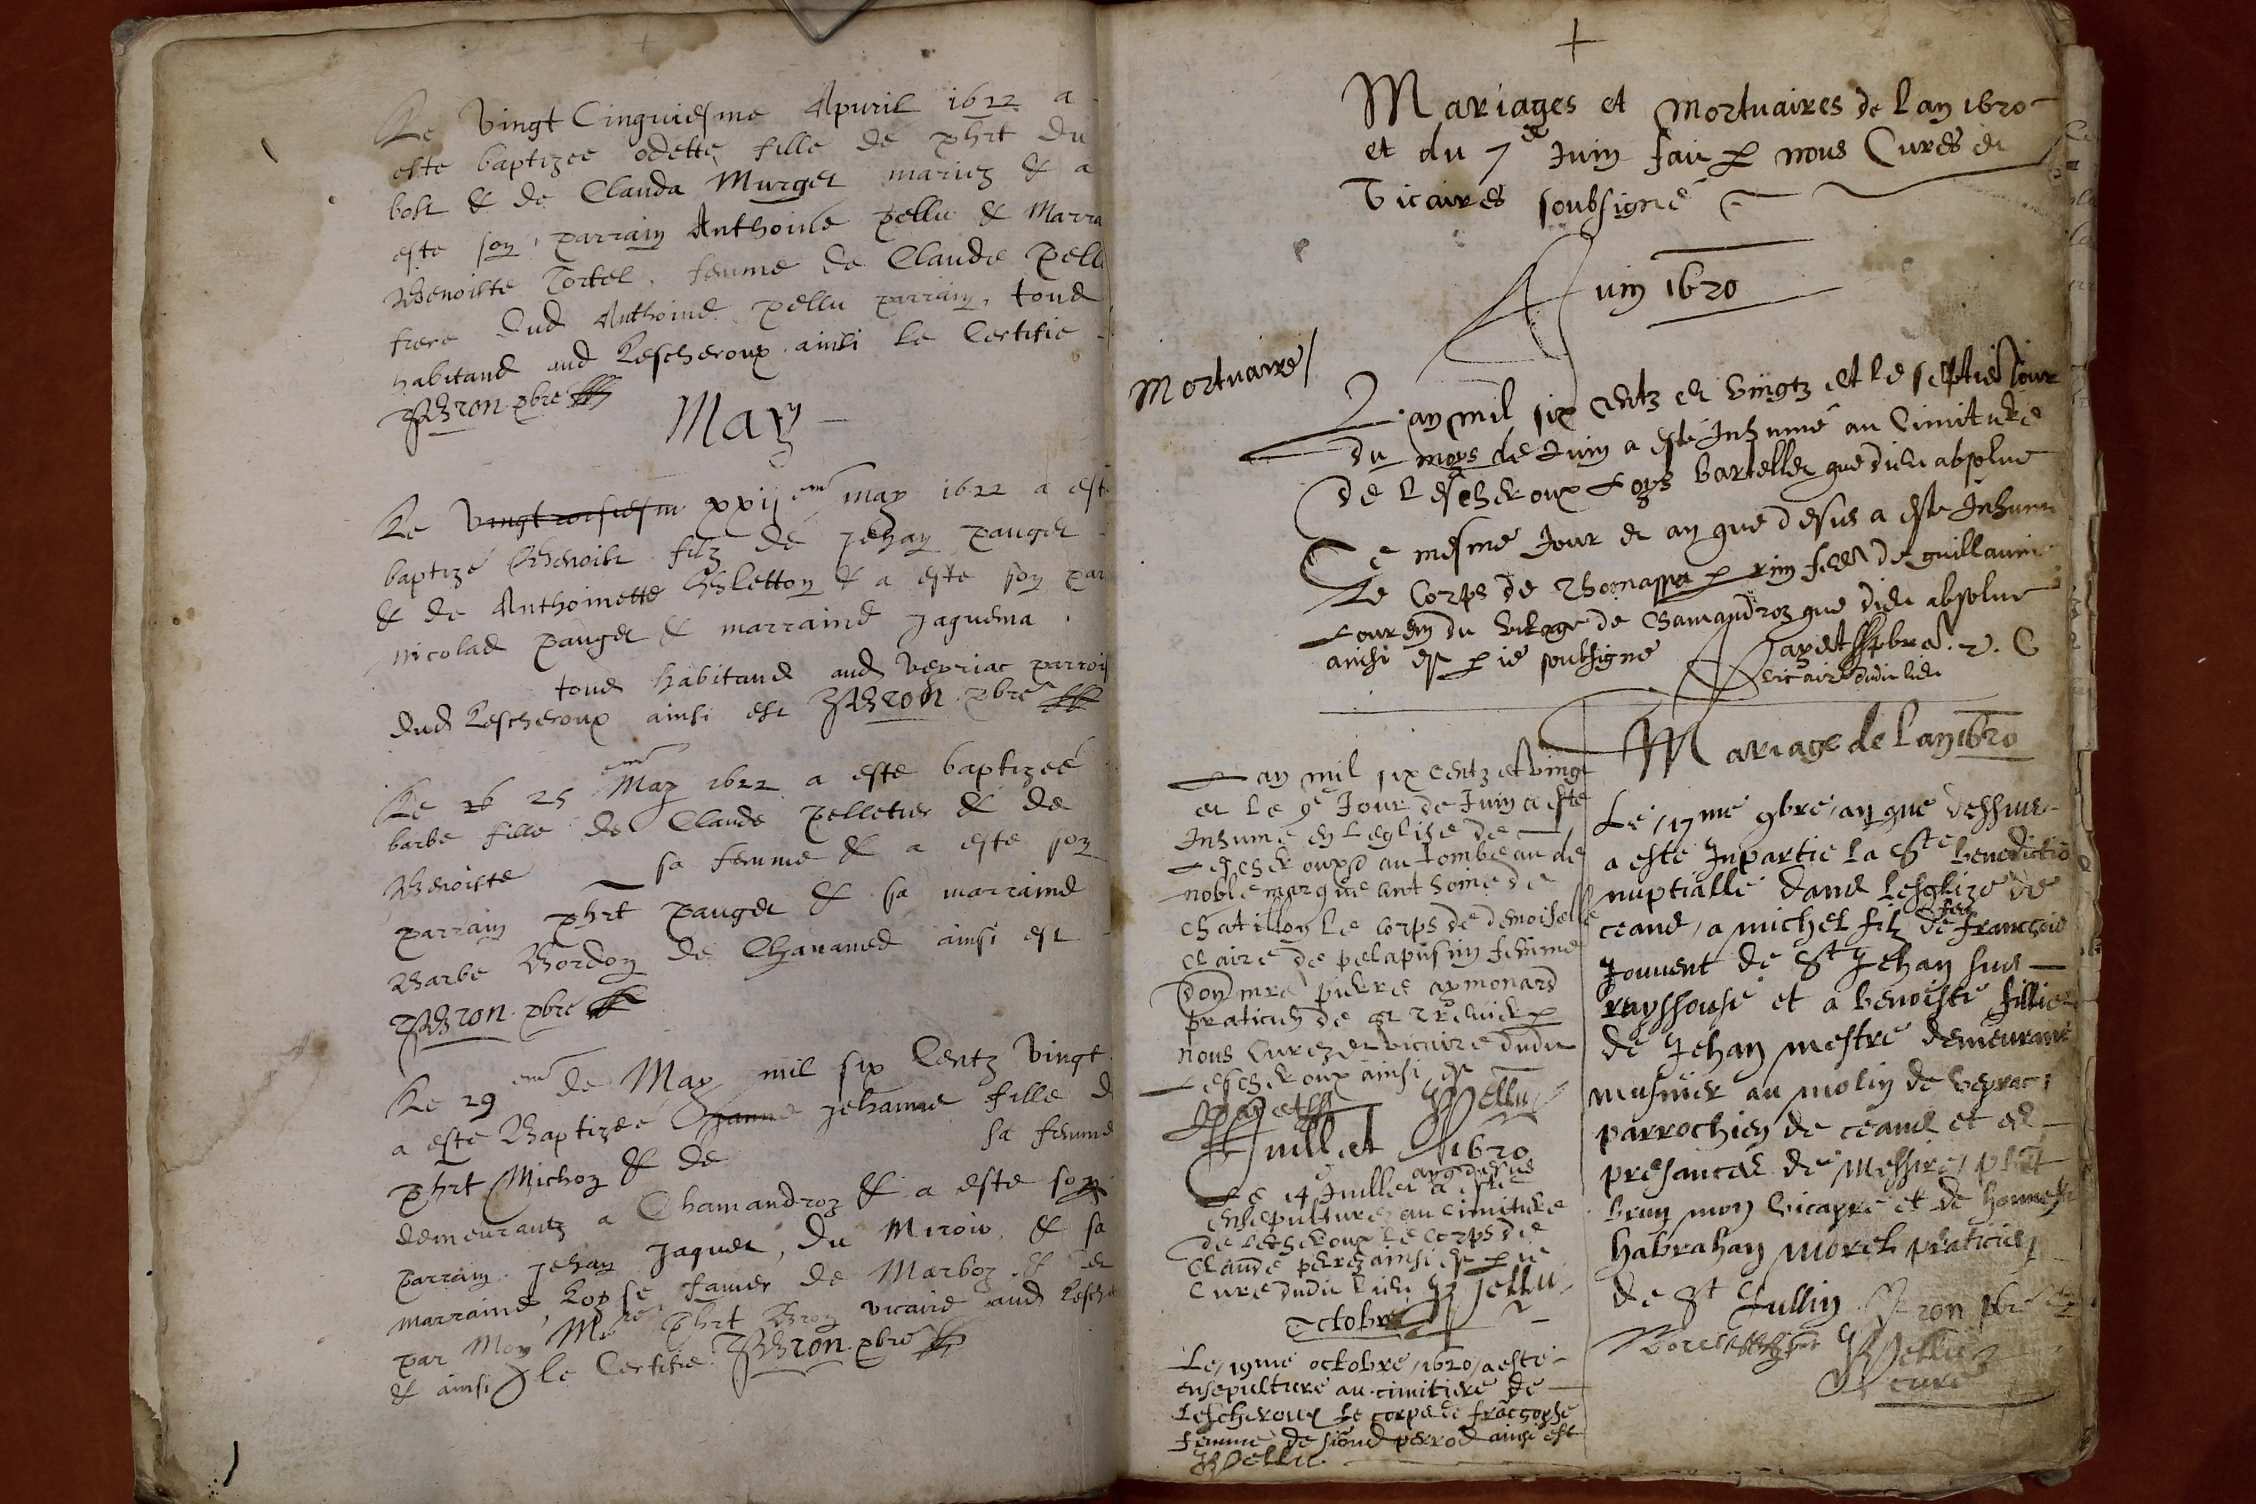 Le vingt cinquiesme Apuril 1622 a
este baptizee odette fille de phrt du
bost & de Clauda Murget mariez & a
este son parrain Anthoine pellu & Marra
Benoiste Tortel femme de Claude Pell
frere dud Anthoine pellu parrain, tous
habitans aud Lescheroux ainsi le Certifie
Bron pbre
May
Le vingt troisiesm xxij eme may 1622 a est
baptizé Benoist filz de Jehan pauget
& de Anthoinette & a este son par
Nicolas pauget & marraine Jaquema
tous habitans aud veyriac parrois
dud Lescheroux ainsi est Bron pbre
Le 26 25 eme May 1622 a este baptizeé
barbe fille de Claude Pelletier & de
Benoiste sa femme & a este son
parrain phrt pauget & sa marraine
Barbe Bordon de Chauanes ainsi est
Bron pbre
Le 29 eme de May mil six Centz vingt
a esté Baptizée Janne Jehanne fille d
phrt Michon & de sa femme
demeurantz a Chamandroz & a este son
parrain Jehan Jaquet, du Miroir, & sa
marraine, Loyse de Marboz &
par Moy Mre phrt Bron vicaire aud Lesche
& ainsi Je le Certifie Bron pbre
Mariages et Mortuaires de lan 1620
et du 7e Juin faic p nous Cures et
Vicaires soubsigné
Juin 1620
Mortuaire
L'an mil six centz et vingtz et le septie Jour
du moys de Juin a esté Inhumé au Cimitiere
de Lescheroux Loys Barrellet que dieu absolue
Ce mesme Jour et an que desus a este Inhumé
Le Corps de Thomassa p rin feme de guillaume
du vilage de Chamandroz que dieu absolue
ainsi est p ie soubsigne Jayet pbre
vicaire dudit lieu
Lan mil six centz et vingt
et le 9e Jour de Juin a este
Inhumé en leglise de
Lescheroux au tombeau de
noble marque anthoine de
chatillon le corps de demoiselle
Claire de femme
don mre pierre aymonard
praticien de St p
nous Curez et vicaire dudit
Lescheroux ainsi est
Jayet Pellu
Juillet 1620
Le 14e Juillet an q desus a este
ensepulturé au cimitiere
de Lescheroux le corps de
Claude perrez ainsi est p ie
Curé dudit lieu Pellu
Octobre
Le 19me octobre 1620 a esté
ensepulturé au cimitiere de
Lescheroux le corps de francoyse
femme de perrod ainsi est
Pellu
Mariage de lan 1620
Le 17me 9bre an que dessus
a este Inpartie la Ste benediction
nuptialle dans lesglize de
ceans a michel filz de feu francois
Jouvent de St Jehan sur
reyssouse et a benoiste fillie
de Jehan mestre demeurant
musnier au molin de veyriac
parrochien de ceans et es
presances de Messire phrt
brun mon vicayre et de honneste
habrahan morel praticien
de St Jullin Bron pbre
Morel Pellu
curé